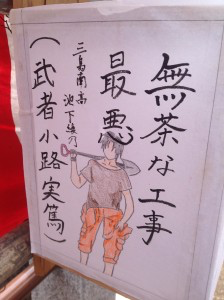 無茶な工事
最悪
三島南高
(武者小路実篤)